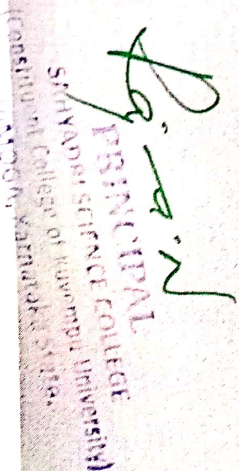 PRINCIPAL
SAHYADRI SCIENCE COLLEGE
(Constituent College of Kuvempu University)
Karnataka State.